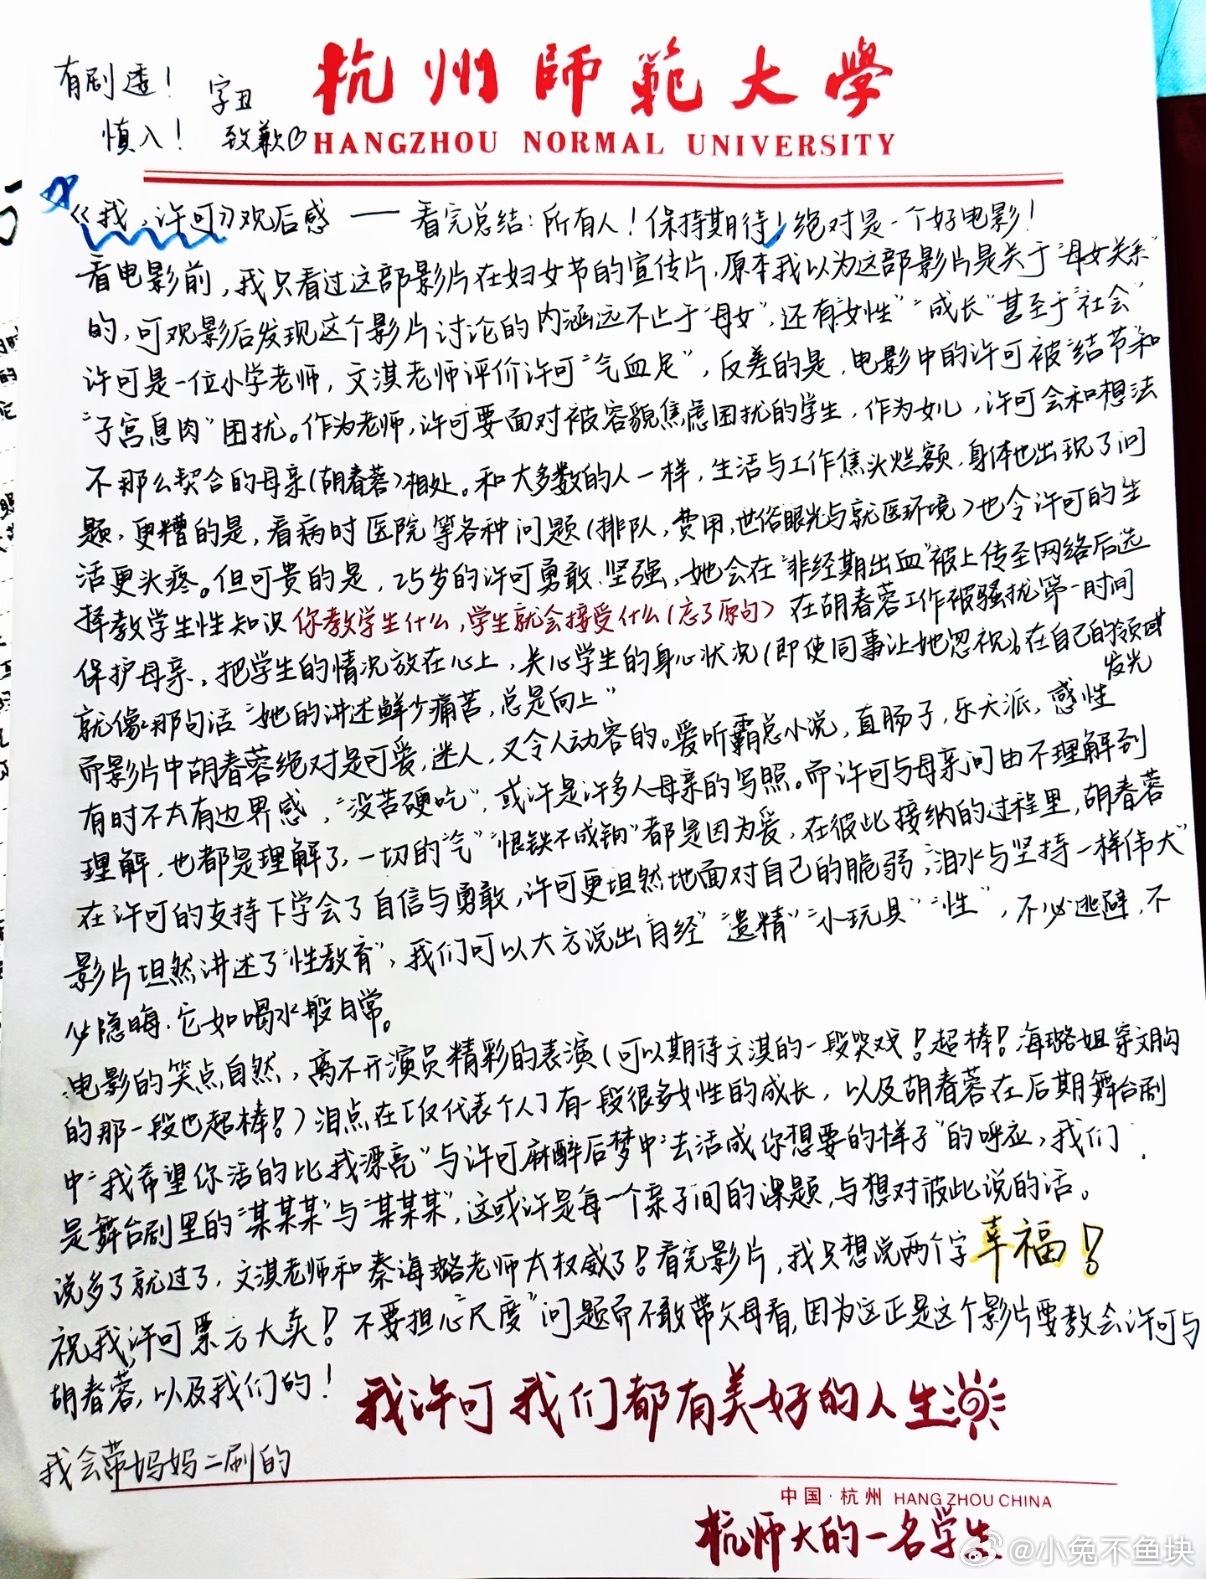 有剧透！
慎入！
字丑
致歉
杭州師範大學
HANGZHOU NORMAL UNIVERSITY
《我，许可》观后感 —— 看完总结：所有人！保持期待！绝对是一个好电影！
看电影前，我只看过这部影片在妇女节的宣传片，原本我以为这部影片是关于“母女关系”
的，可观影后发现这个影片讨论的内涵远不止于“母女”，还有“女性”“成长”甚至于“社会”
许可是一位小学老师，文淇老师评价许可“气血足”，反差的是，电影中的许可被“结节”和
“子宫息肉”困扰。作为老师，许可要面对被容貌焦虑困扰的学生，作为女儿，许可会和想法
不那么契合的母亲（胡春蓉）相处。和大多数的人一样，生活与工作焦头烂额，身体也出现了问
题，更糟的是，看病时医院等各种问题（排队，费用，世俗眼光与就医环境）也令许可的生
活更头疼。但可贵的是，25岁的许可勇敢、坚强，她会在“非经期出血”被上传至网络后选
择教学生性知识 你教学生什么，学生就会接受什么（忘了原句） 在胡春蓉工作被骚扰第一时间
保护母亲，把学生的情况放在心上，关心学生的身心状况（即使同事让她忽视），在自己的领域
发光
就像那句话“她的讲述鲜少痛苦，总是向上”
而影片中胡春蓉绝对是可爱，迷人，又令人动容的。爱听霸总小说，直肠子，乐天派，感性
有时不太有边界感，“没苦硬吃”，或许是许多人母亲的写照。而许可与母亲间由不理解到
理解，也都是理解了，一切的“气”“恨铁不成钢”都是因为爱，在彼此接纳的过程里，胡春蓉
在许可的支持下学会了自信与勇敢，许可更坦然地面对自己的脆弱；“泪水与坚持一样伟大”
影片坦然讲述了“性教育”，我们可以大方说出“月经”“遗精”“小玩具”“性”，不必逃避，不
必隐晦，它如喝水般日常。
电影的笑点自然，离不开演员精彩的表演（可以期待文淇的一段哭戏！超棒！海璐姐穿文胸
的那一段也超棒！）泪点在[仅代表个人]有一段很多女性的成长，以及胡春蓉在后期舞台剧
中“我希望你活的比我漂亮”与许可麻醉后梦中“去活成你想要的样子”的呼应，我们
是舞台剧里的“某某某”与“某某某”，这或许是每一个亲子间的课题，与想对彼此说的话。
说多了就过了，文淇老师和秦海璐老师太权威了！看完影片，我只想说两个字幸福！
祝我，许可票房大卖！不要担心“尺度”问题而不敢带父母看，因为这正是这个影片要教会许可与
胡春蓉，以及我们的！
我许可 我们都有美好的人生
我会带妈妈二刷的
中国·杭州 HANG ZHOU CHINA
杭师大的一名学生
@小兔不鱼块